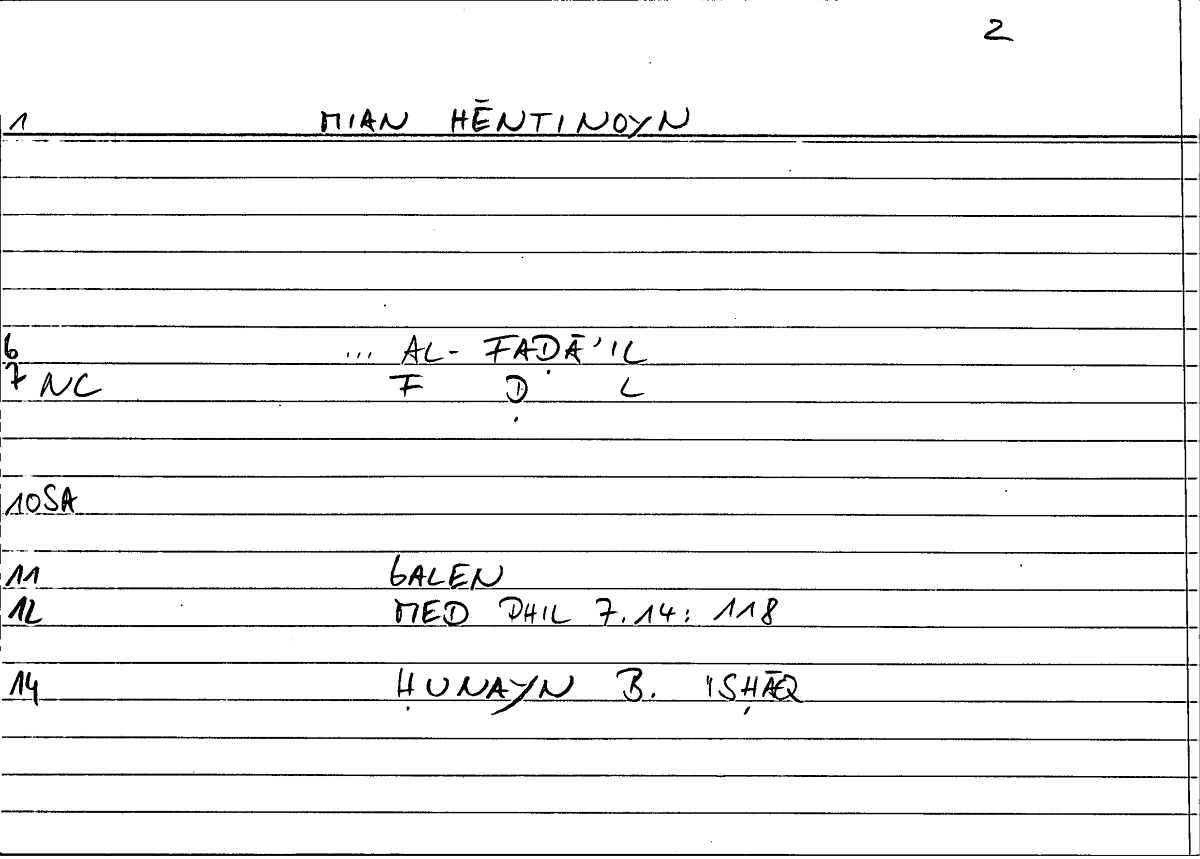 2
1 MIAN HĒNTINOYN
6 ... AL- FAḌĀ'IL
7 NC F Ḍ L
10 SA
11 GALEN
12 MED PHIL 7.14: 118
14 ḤUNAYN B. 'ISḤĀQ